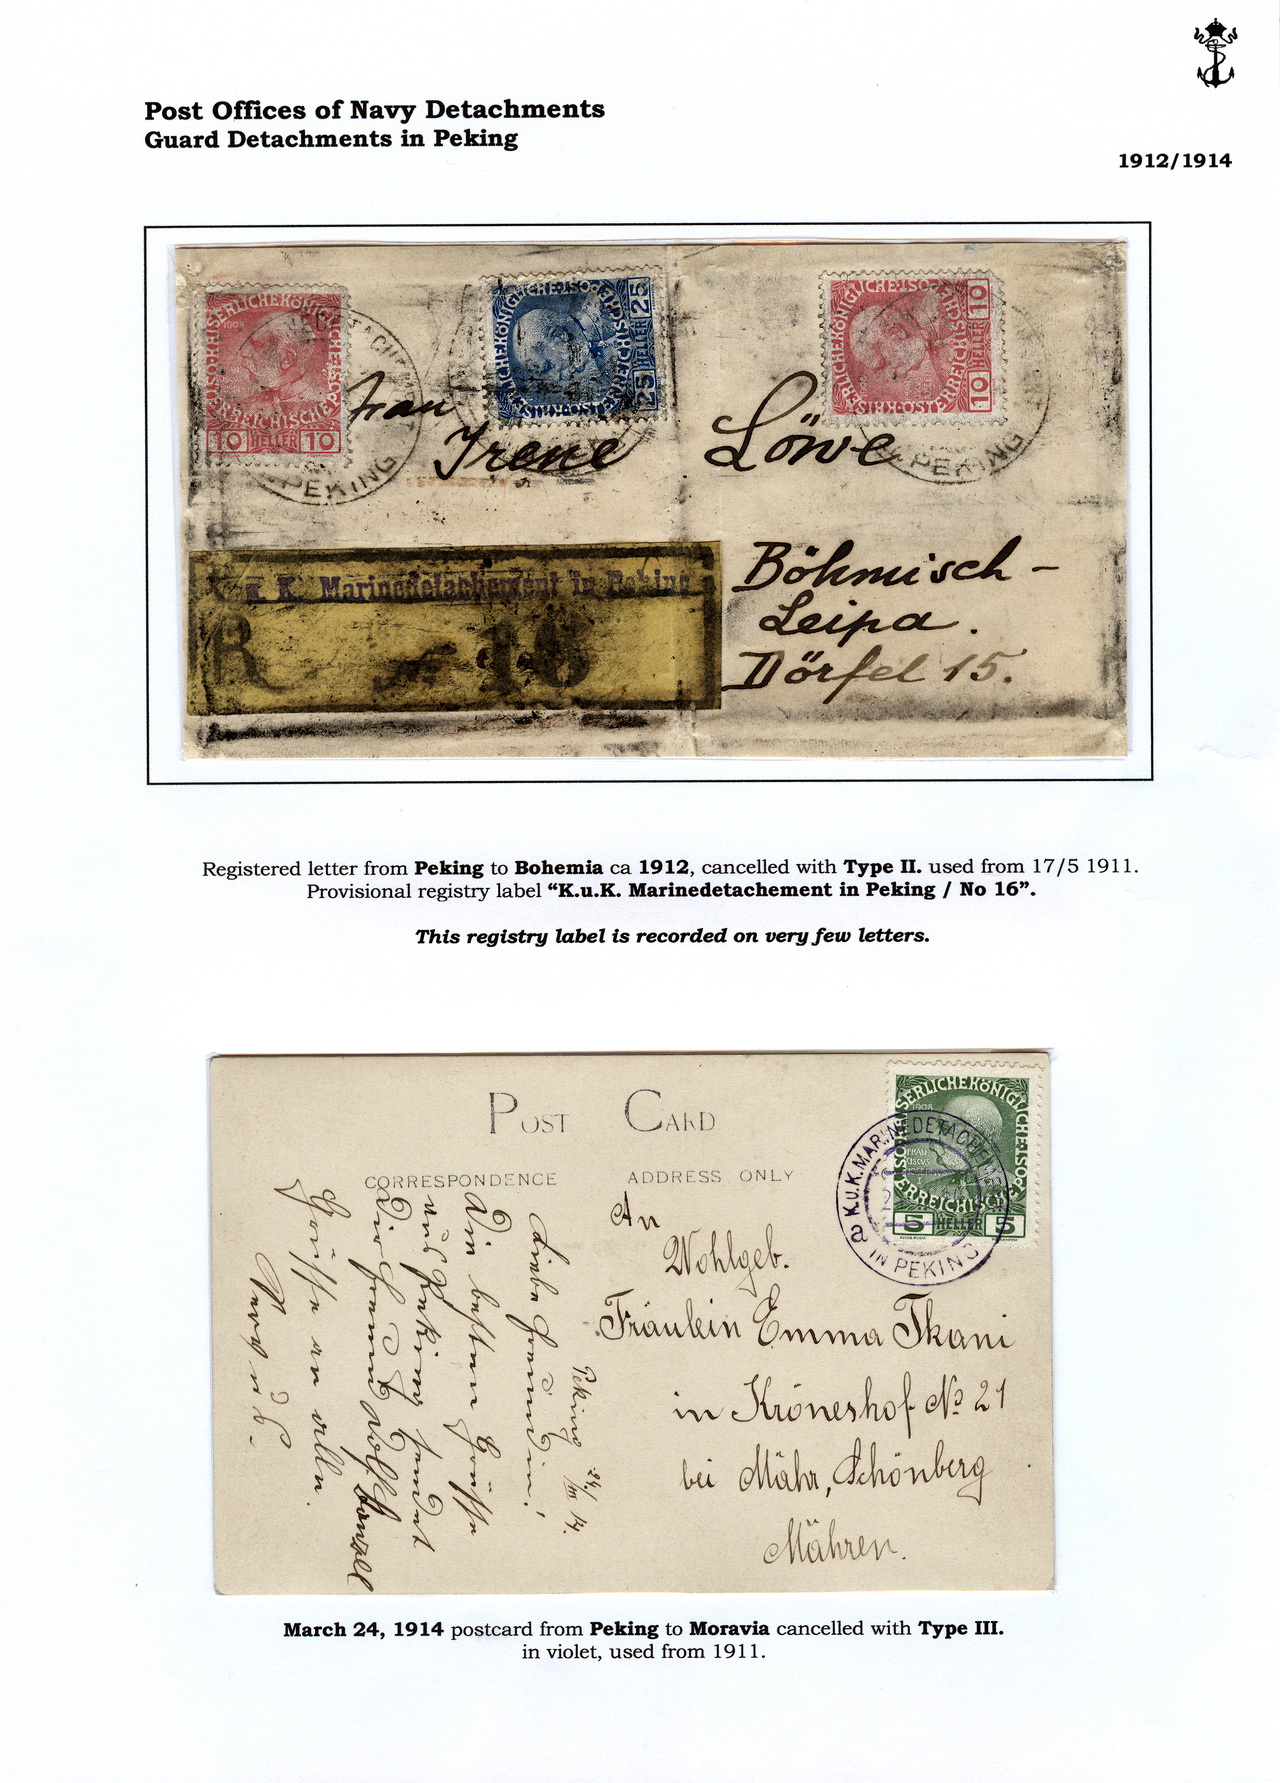 Post Offices of Navy Detachments
Guard Detachments in Peking
1912/1914
1908
10 HELLER 10
25 HELLER 25
10 HELLER 10
PEKING
PEKING
Frau
Irene Löwe
Böhmisch-
Leipa.
Dörfel 15.
K. u. K. Marinedetachement in Peking
R No 16
Registered letter from Peking to Bohemia ca 1912, cancelled with Type II. used from 17/5 1911.
Provisional registry label “K.u.K. Marinedetachement in Peking / No 16”.
This registry label is recorded on very few letters.
POST CARD
CORRESPONDENCE
ADDRESS ONLY
1908
5 HELLER 5
K.u.K. MARINEDETACHEMENT
IN PEKING
An
Wohlgeb.
Fräulein Emma Tkani
in Kröneshof No 21
bei Mähr, Schönberg
Mähren.
Peking 24/III 14.
Liebe Freundin!
Die besten Grüße
aus Peking sendet
Grüße an alle.
March 24, 1914 postcard from Peking to Moravia cancelled with Type III.
in violet, used from 1911.